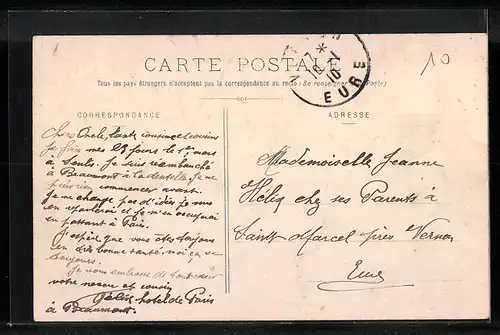 CARTE POSTALE
Tous les pays étrangers n'acceptent pas la correspondance au recto (Se renseigner à la Poste)
7 *
10 - 1
10
EURE
10
CORRESPONDANCE
ADRESSE
Chers Oncle, tante cousine et cousins
Je fais mes 23 jours le 1er mars
à Senlis. Je suis réembauché
à Beaumont à la dentelle. Je ne
puis rien commencer avant.
Je ne change pas d'idée je vous
en reparlerai et je m'en occuperai
en passant à Paris.
J'espère que vous êtes toujours
en très bonne santé, moi ça va
toujours.
Je vous embrasse de tout cœur
votre neveu et cousin
hotel de Paris
à Beaumont.
Mademoiselle Jeanne
Héliq chez ses Parents à
Saint Marcel près Vernon
Eure